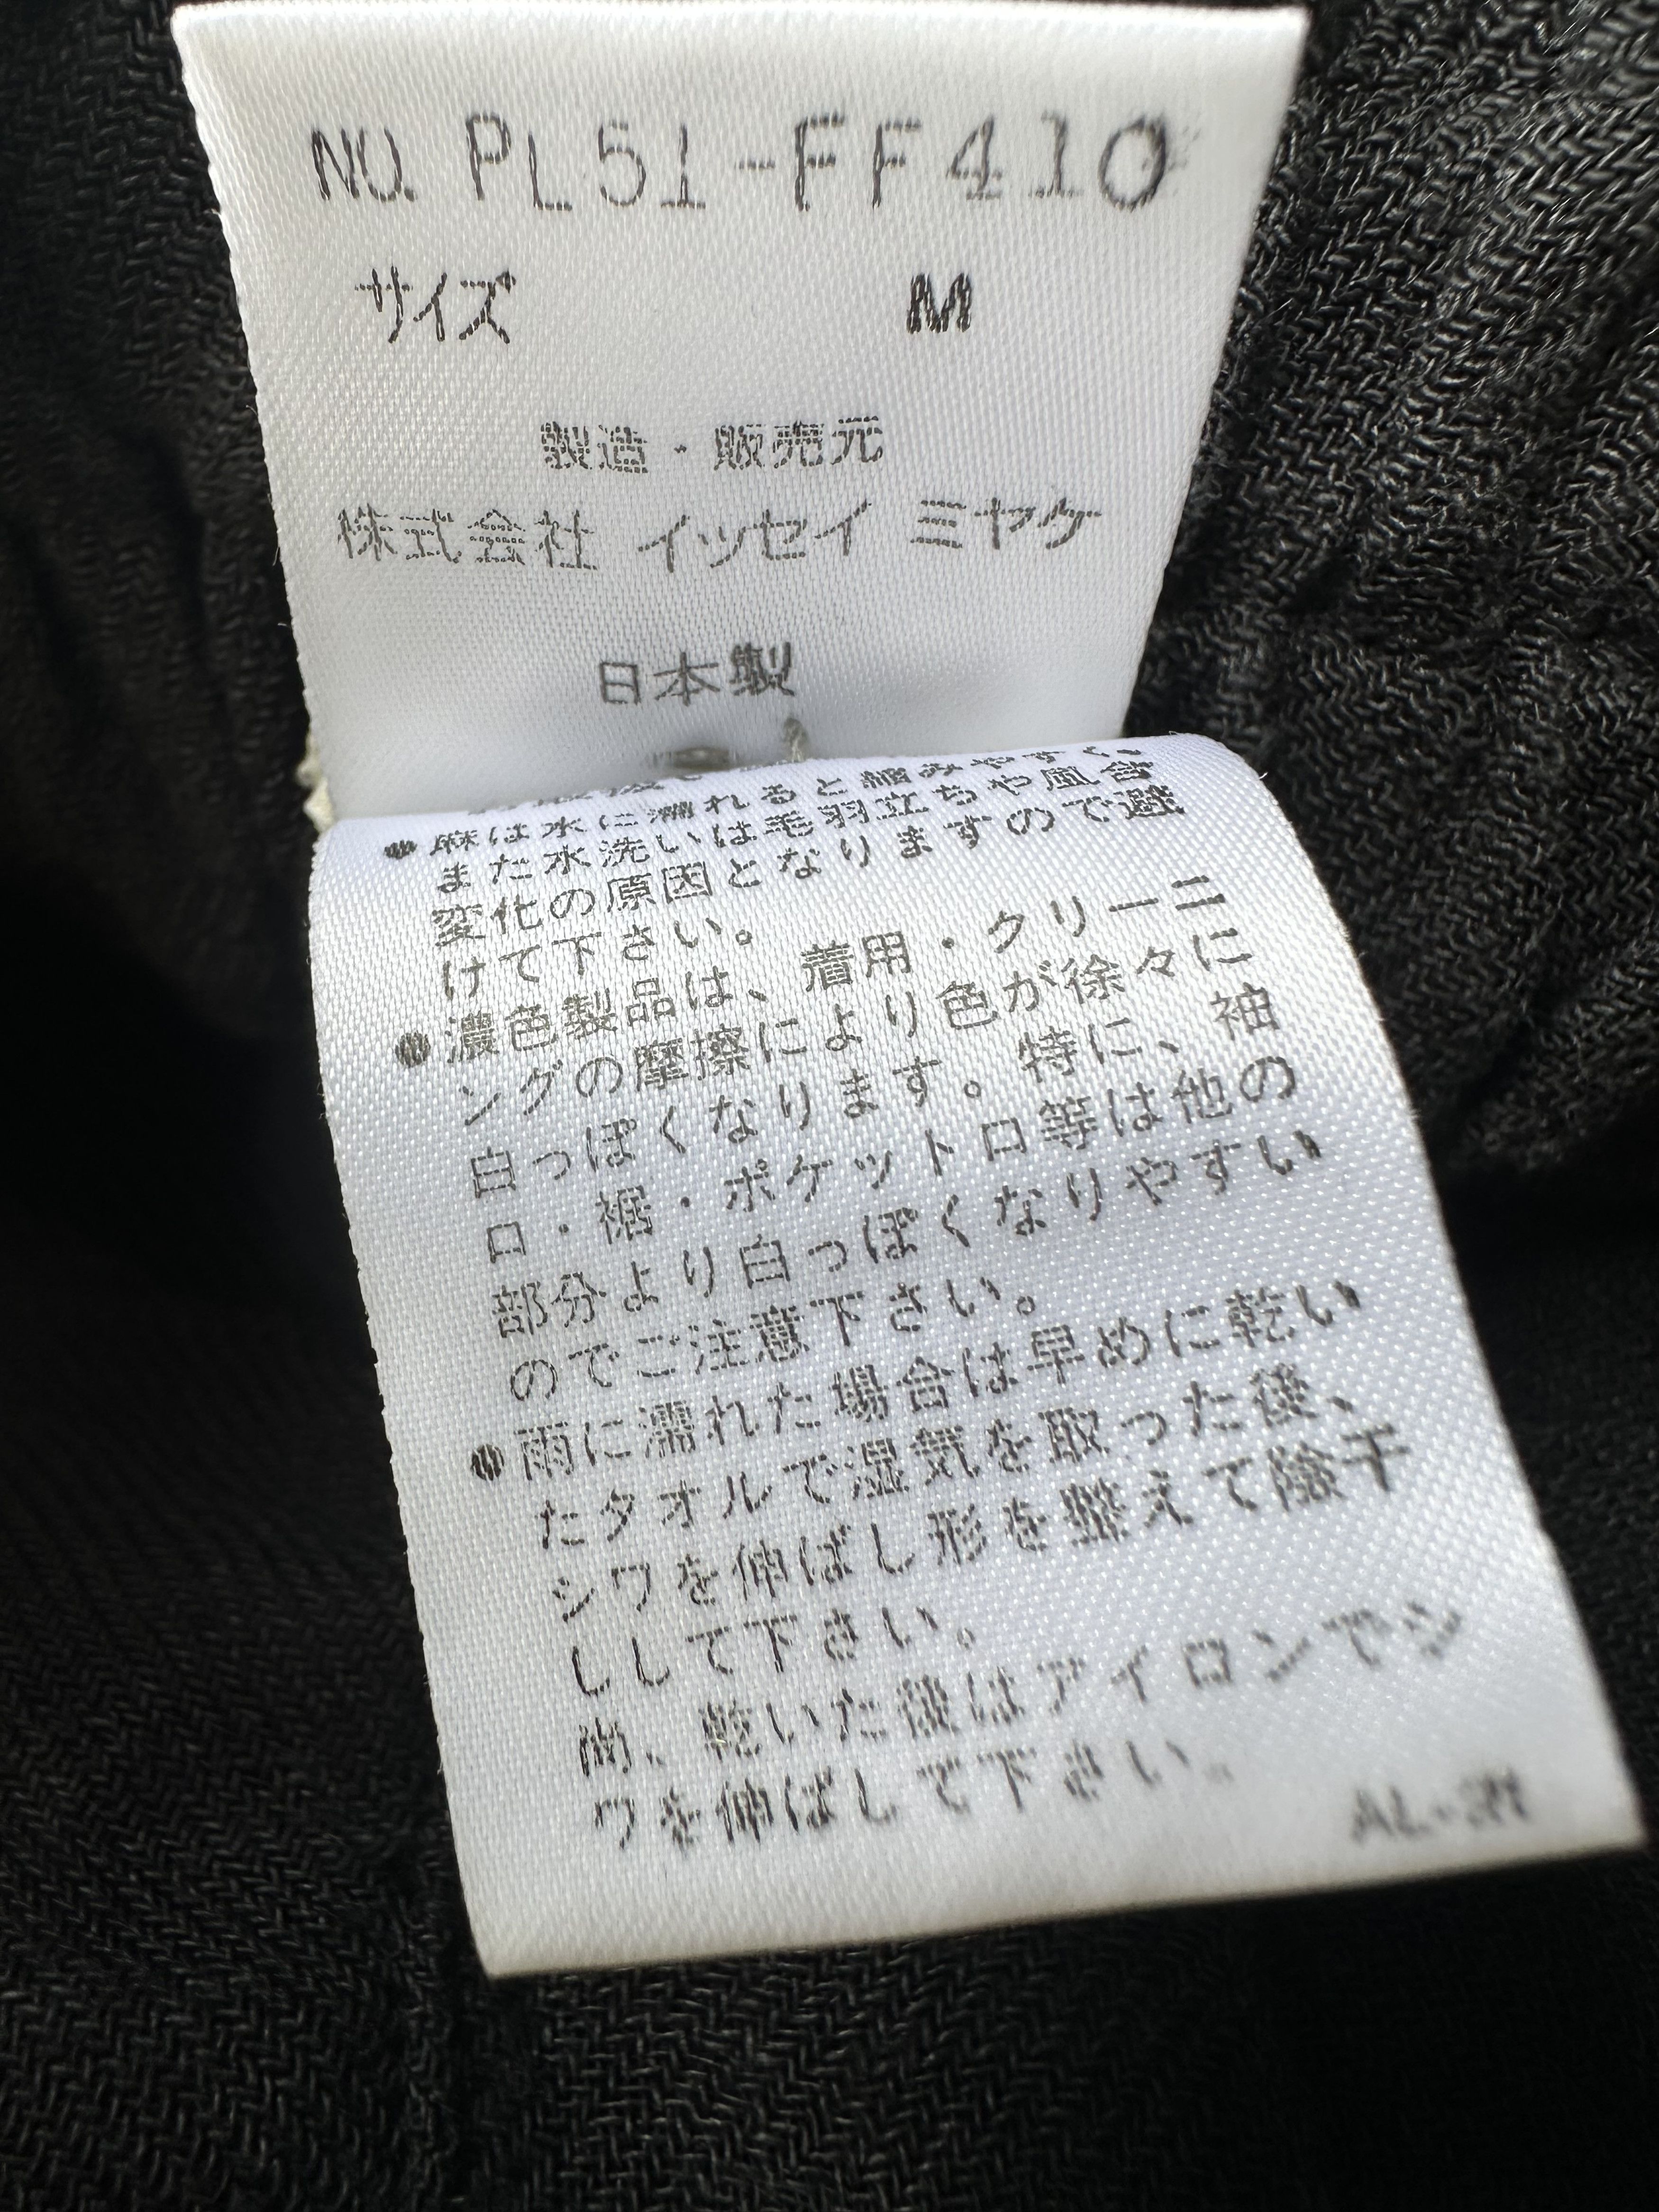 NO. PL51-FF410
サイズ M
製造・販売元
株式会社 イッセイ ミヤケ
日本製
●麻は水に濡れると縮みやすく、
また水洗いは毛羽立ちや風合
変化の原因となりますので避
けて下さい。
●濃色製品は、着用・クリーニ
ングの摩擦により色が徐々に
白っぽくなります。特に、袖
口・裾・ポケット口等は他の
部分より白っぽくなりやすい
のでご注意下さい。
●雨に濡れた場合は早めに乾い
たタオルで湿気を取った後、
シワを伸ばし形を整えて陰干
しして下さい。
尚、乾いた後はアイロンでシ
ワを伸ばして下さい。